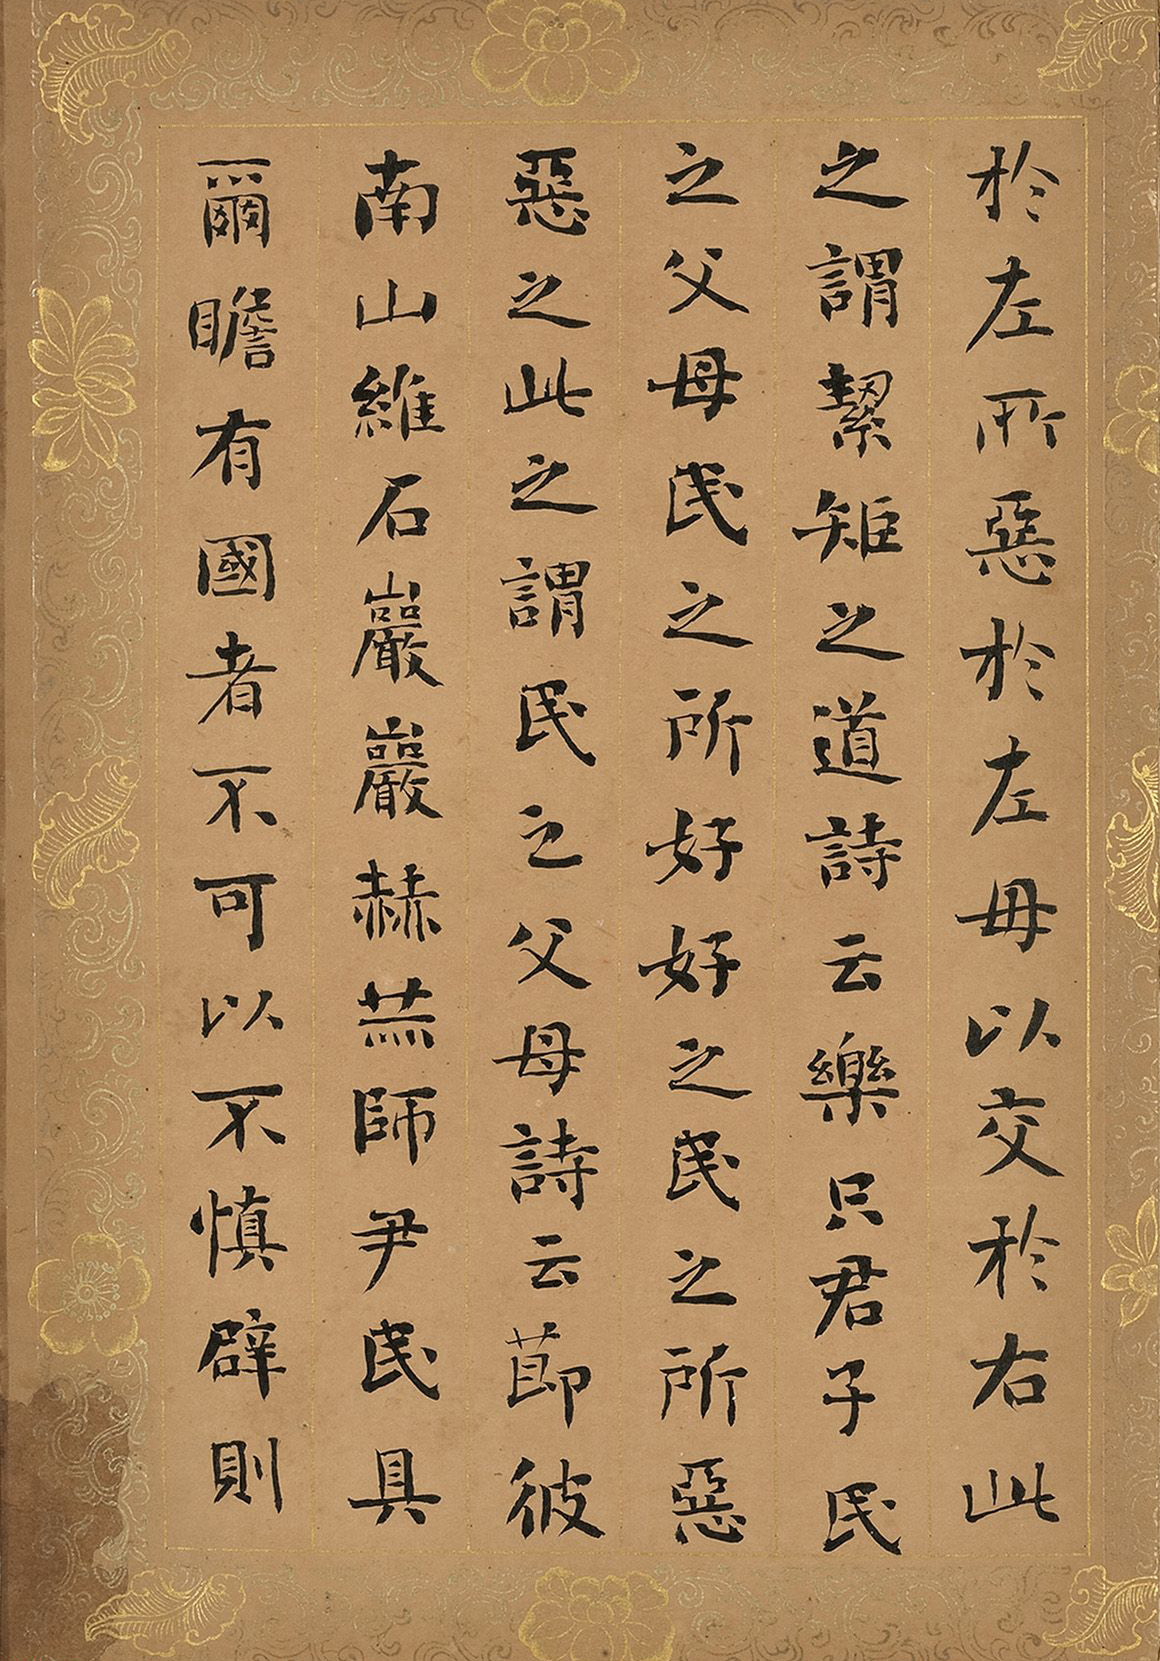 於左所惡於左毋以交於右此
之謂絜矩之道詩云樂只君子民
之父母民之所好好之民之所惡
惡之此之謂民之父母詩云節彼
南山維石巖巖赫赫師尹民具
爾瞻有國者不可以不慎辟則